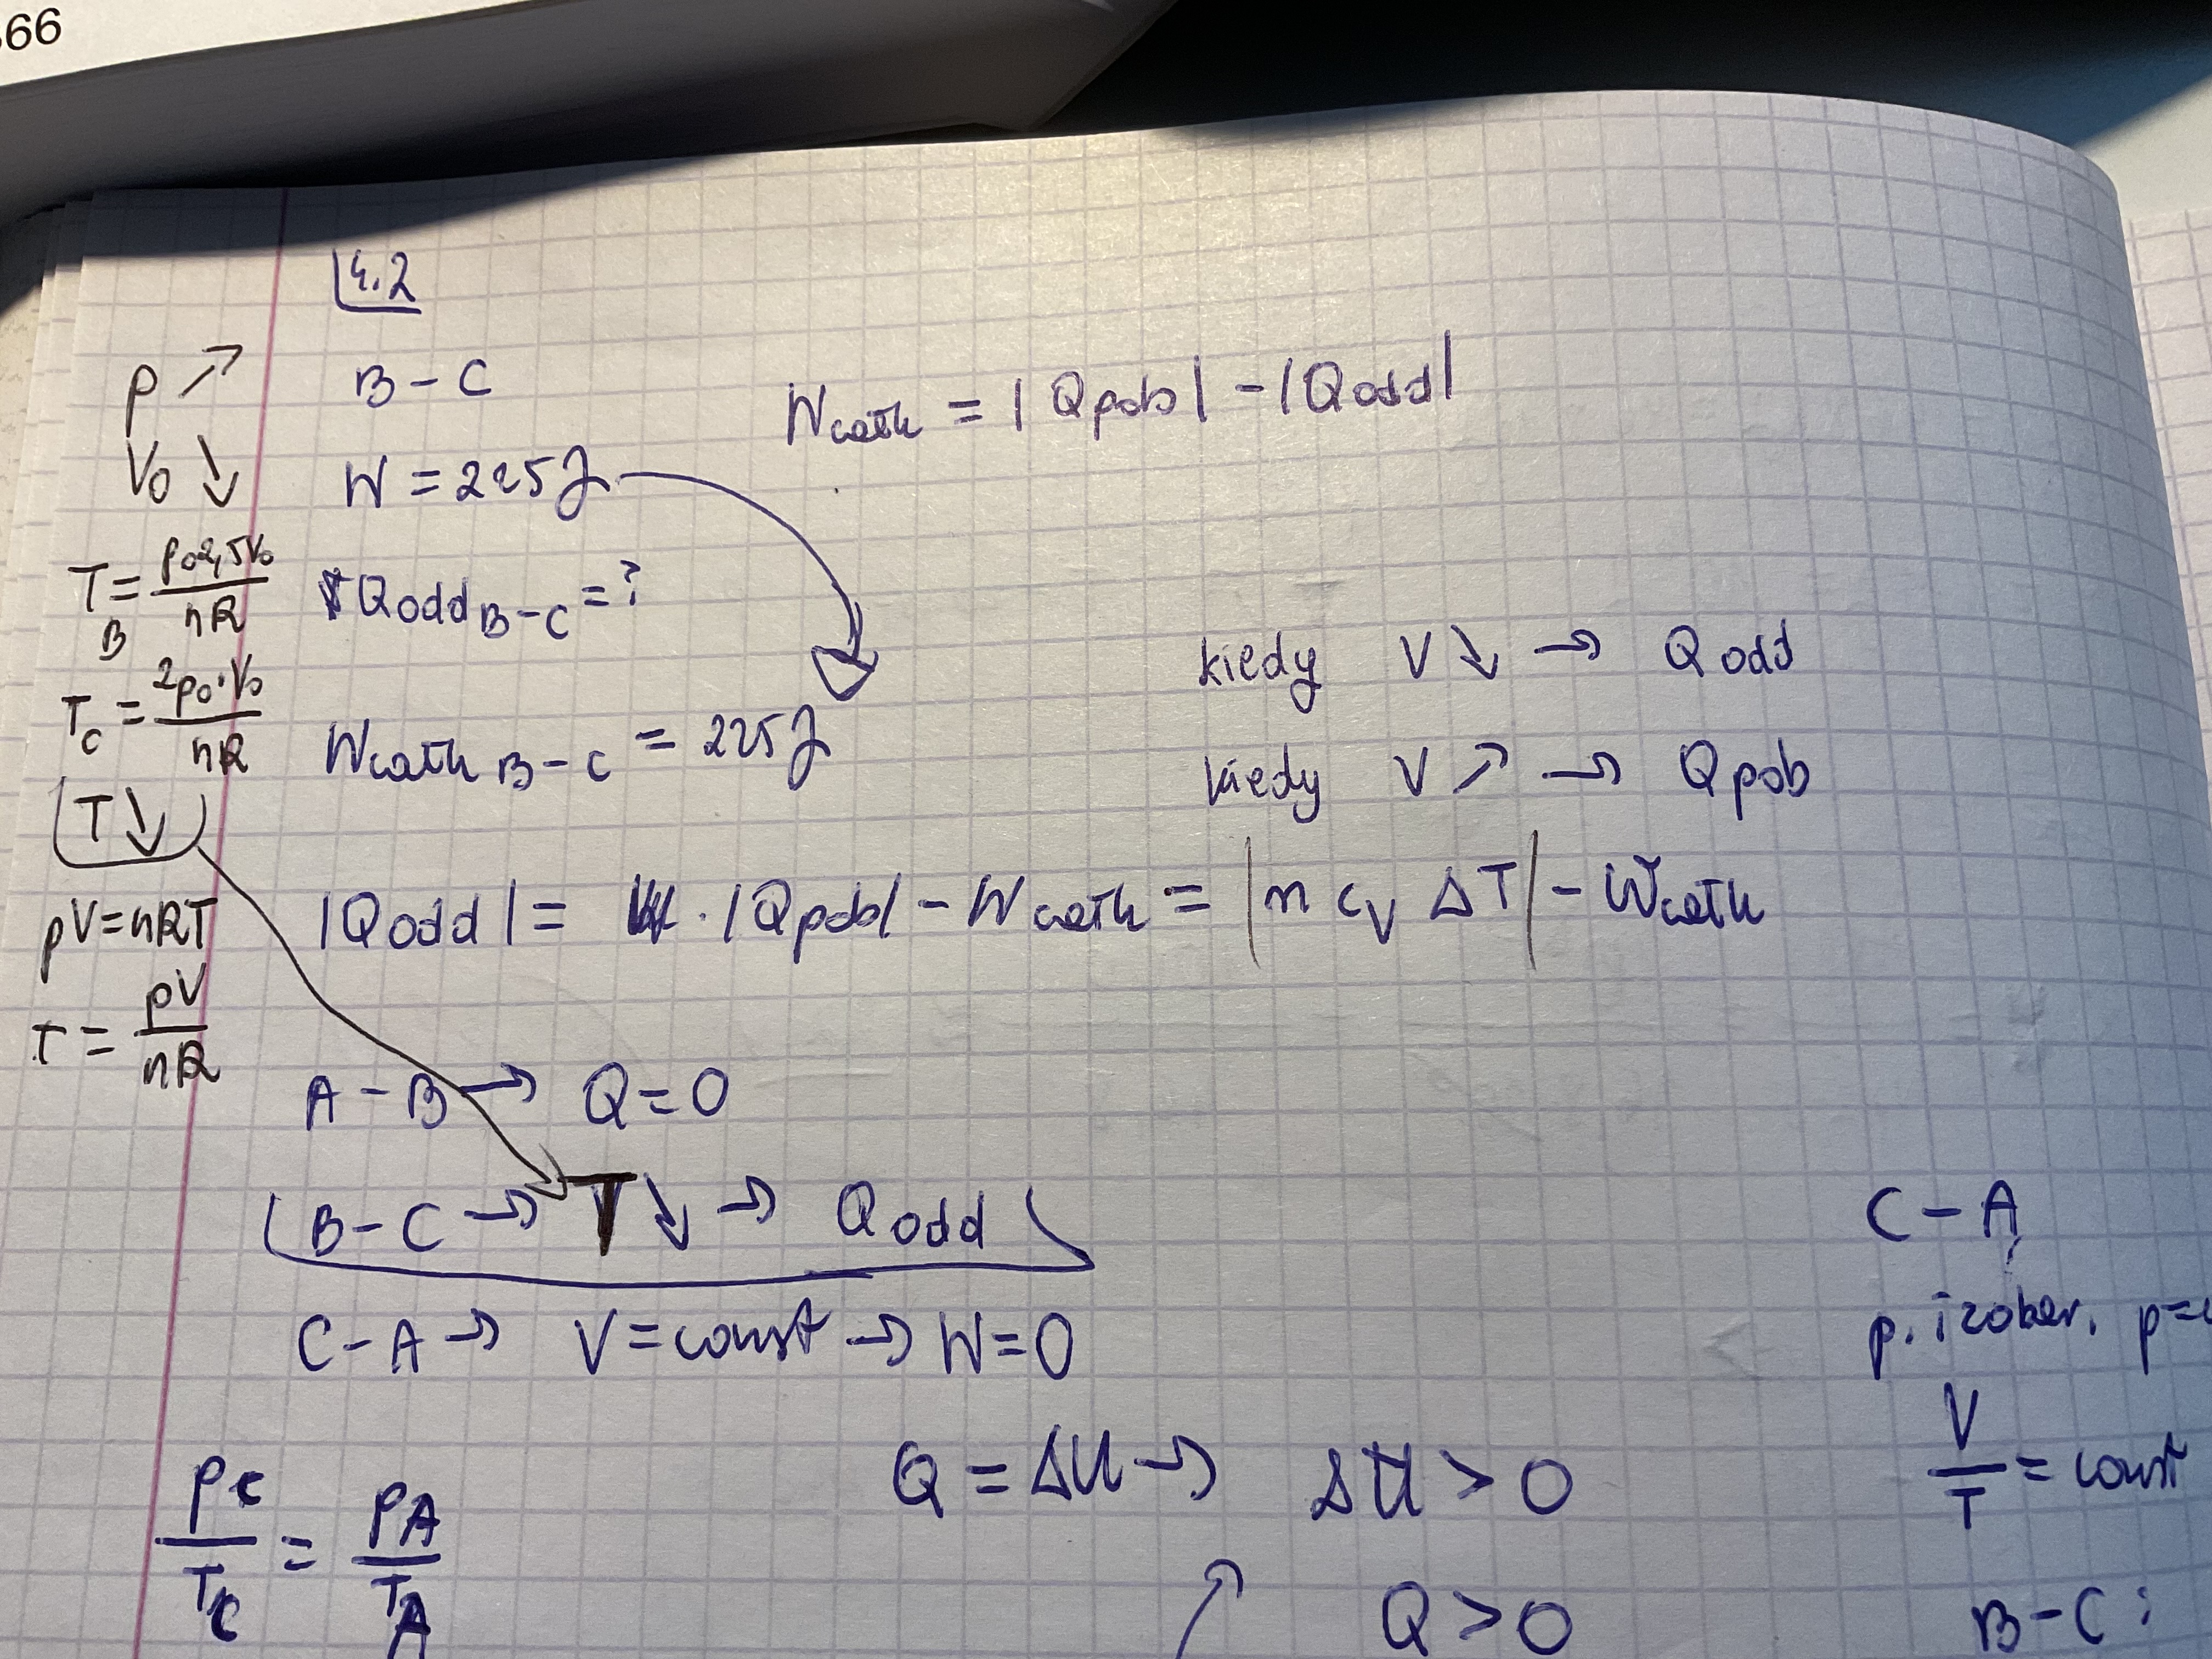 66
4.2
p ↗
V₀ ↘
T_B = p₀2,5V₀ / nR
T_C = 2p₀·V₀ / nR
T ↓
pV = nRT
T = pV / nR
B – C
W = 225J
Q odd B–C = ?
W całk B–C = 225J
W całk = |Q pob| – |Q odd|
kiedy V ↘ → Q odd
kiedy V ↗ → Q pob
|Q odd| = · |Q pob| – W całk = |n c_V ΔT| – W całk
A – B → Q = 0
B – C → T ↓ → Q odd
C – A → V = const → W = 0
Q = ΔU → ΔU > 0
Q > 0
p_C / T_C = p_A / T_A
C – A
p. izobar. p =
V / T = const
B – C :